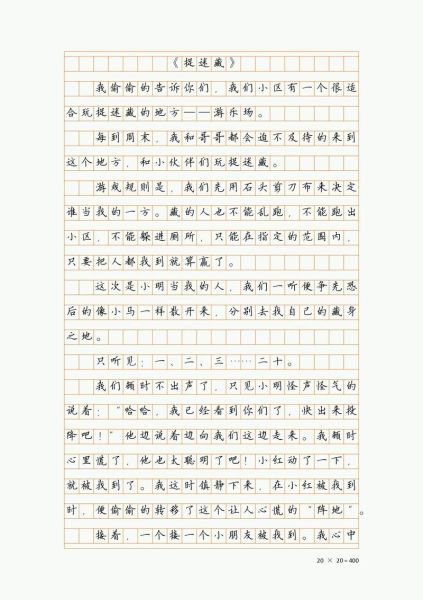 《捉迷藏》
我偷偷的告诉你们，我们小区有一个很适
合玩捉迷藏的地方——游乐场。
每到周末，我和哥哥都会迫不及待的来到
这个地方，和小伙伴们玩捉迷藏。
游戏规则是，我们先用石头剪刀布来决定
谁当找的一方。藏的人也不能乱跑，不能跑出
小区，不能躲进厕所，只能在指定的范围内，
只要把人都找到就算赢了。
这次是小明当找的人，我们一听便争先恐
后的像小马一样散开来，分别去找自己的藏身
之地。
只听见：一、二、三……二十。
我们顿时不出声了，只见小明怪声怪气的
说着：“哈哈，我已经看到你们了，快出来投
降吧！”他边说着边向我们这边走来。我顿时
心里慌了，他也太聪明了吧！小红动了一下，
就被找到了。我这时镇静下来，在小红被找到
时，便偷偷的转移了这个让人心慌的“阵地”。
接着，一个接一个小朋友被找到。我心中
20 × 20=400